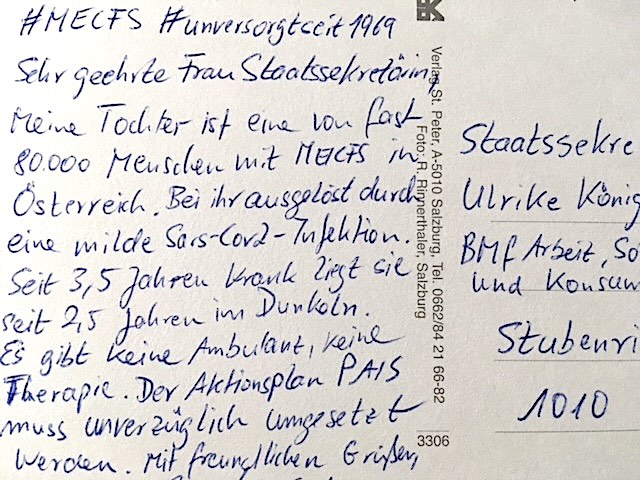 #MECFS #unversorgtseit1969
Sehr geehrte Frau Staatssekretärin,
Meine Tochter ist eine von fast
80.000 Menschen mit MECFS in
Österreich. Bei ihr ausgelöst durch
eine milde Sars-Cov2-Infektion.
Seit 3,5 Jahren krank liegt sie
seit 2,5 Jahren im Dunkeln.
Es gibt keine Ambulanz, keine
Therapie. Der Aktionsplan PAIS
muss unverzüglich umgesetzt
werden. Mit freundlichen Grüßen,
Verlag St. Peter, A-5010 Salzburg, Tel. 0662/84 21 66-82
Foto: R. Rinnerthaler, Salzburg
3306
Staatssekre
Ulrike König
BMf Arbeit, So
und Konsum
Stubenri
1010